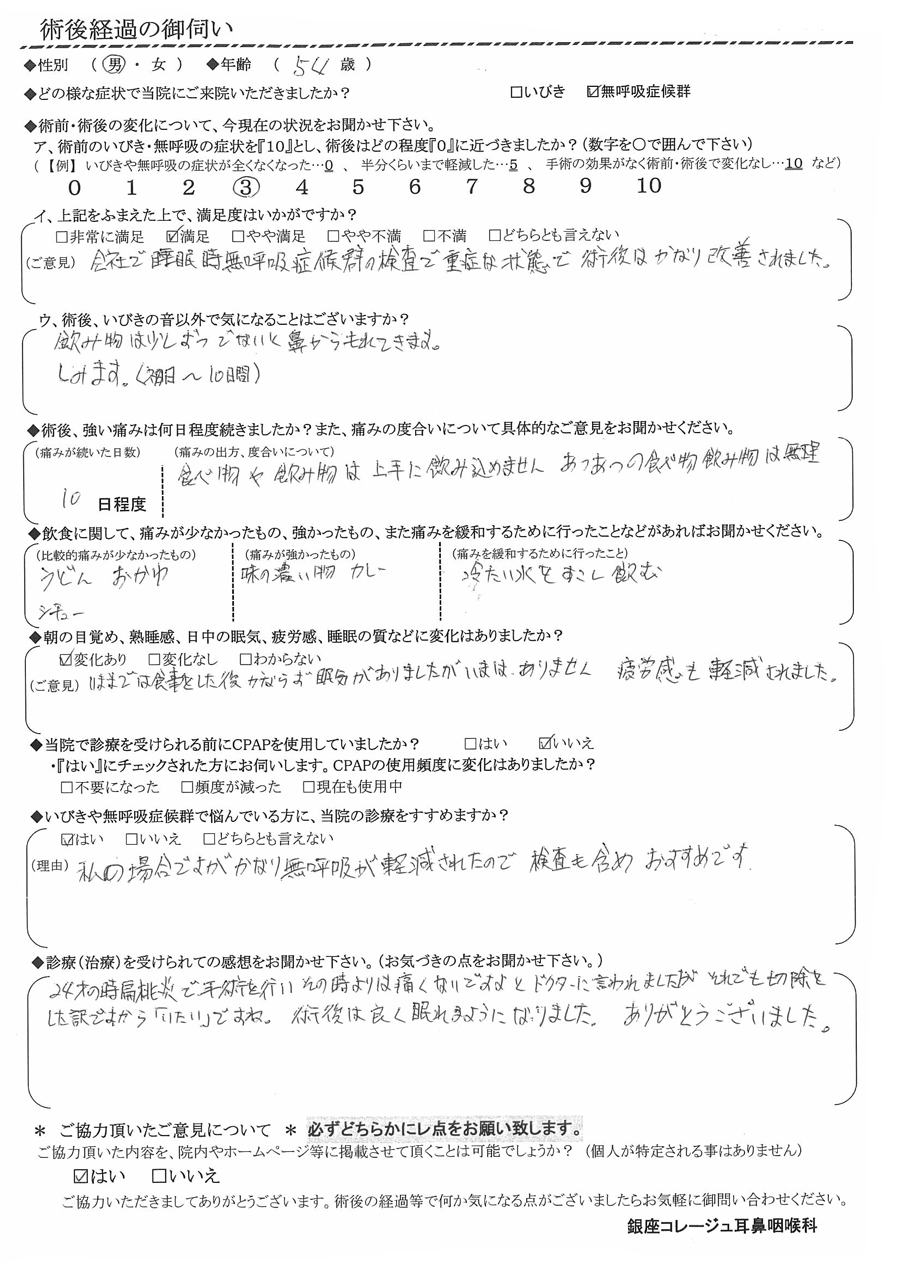 術後経過の御伺い
◆性別 （ 男 ・ 女 ） ◆年齢 （ 54 歳 ）
◆どの様な症状で当院にご来院いただきましたか？ □いびき ☑無呼吸症候群
◆術前・術後の変化について、今現在の状況をお聞かせ下さい。
ア、術前のいびき・無呼吸の症状を『10』とし、術後はどの程度『0』に近づきましたか？（数字を〇で囲んで下さい）
（【例】 いびきや無呼吸の症状が全くなくなった…0 、 半分くらいまで軽減した…5 、 手術の効果がなく術前・術後で変化なし…10 など）
0 1 2 ③ 4 5 6 7 8 9 10
イ、上記をふまえた上で、満足度はいかがですか？
□非常に満足 ☑満足 □やや満足 □やや不満 □不満 □どちらとも言えない
（ご意見） 会社で睡眠時無呼吸症候群の検査で重症な状態で 術後はかなり改善されました。
ウ、術後、いびきの音以外で気になることはございますか？
飲み物は少しずつでないと鼻からもれてきます。
しみます。（初日～10日間）
◆術後、強い痛みは何日程度続きましたか？また、痛みの度合いについて具体的なご意見をお聞かせください。
（痛みが続いた日数） （痛みの出方、度合いについて）
食べ物や飲み物は上手に飲み込めません あつあつの食べ物飲み物は無理
10 日程度
◆飲食に関して、痛みが少なかったもの、強かったもの、また痛みを緩和するために行ったことなどがあればお聞かせください。
（比較的痛みが少なかったもの） （痛みが強かったもの） （痛みを緩和するために行ったこと）
うどん おかゆ 味の濃い物 カレー 冷たい水をすこし飲む
シチュー
◆朝の目覚め、熟睡感、日中の眠気、疲労感、睡眠の質などに変化はありましたか？
☑変化あり □変化なし □わからない
（ご意見） いままでは食事をした後かならず眠気がありましたがいまは、ありません 疲労感も軽減されました。
◆当院で診療を受けられる前にCPAPを使用していましたか？ □はい ☑いいえ
・『はい』にチェックされた方にお伺いします。CPAPの使用頻度に変化はありましたか？
□不要になった □頻度が減った □現在も使用中
◆いびきや無呼吸症候群で悩んでいる方に、当院の診療をすすめますか？
☑はい □いいえ □どちらとも言えない
（理由） 私の場合ですがかなり無呼吸が軽減されたので 検査も含め おすすめです.
◆診療（治療）を受けられての感想をお聞かせ下さい。（お気づきの点をお聞かせ下さい。）
24才の時扁桃炎で手術を行いその時よりは痛くないですよとドクターに言われましたが それでも切除を
した訳ですから「いたい」ですね。 術後は良く眠れるようになりました。 ありがとうございました。
＊ ご協力頂いたご意見について ＊ 必ずどちらかにレ点をお願い致します。
ご協力頂いた内容を、院内やホームページ等に掲載させて頂くことは可能でしょうか？（個人が特定される事はありません）
☑はい □いいえ
ご協力いただきましてありがとうございます。術後の経過等で何か気になる点がございましたらお気軽に御問い合わせください。
銀座コレージュ耳鼻咽喉科